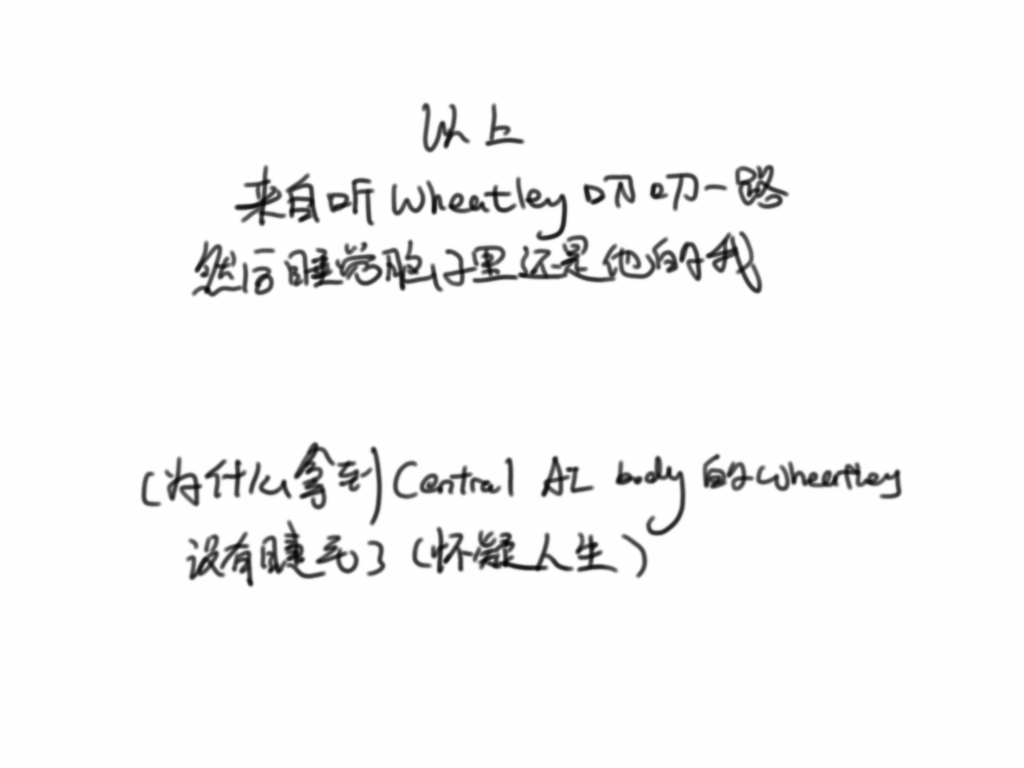 以上
来自听Wheatley叨叨一路
然后睡觉脑子里还是他的我
(为什么拿到)Central AI body的Wheatley
没有睫毛了(怀疑人生)